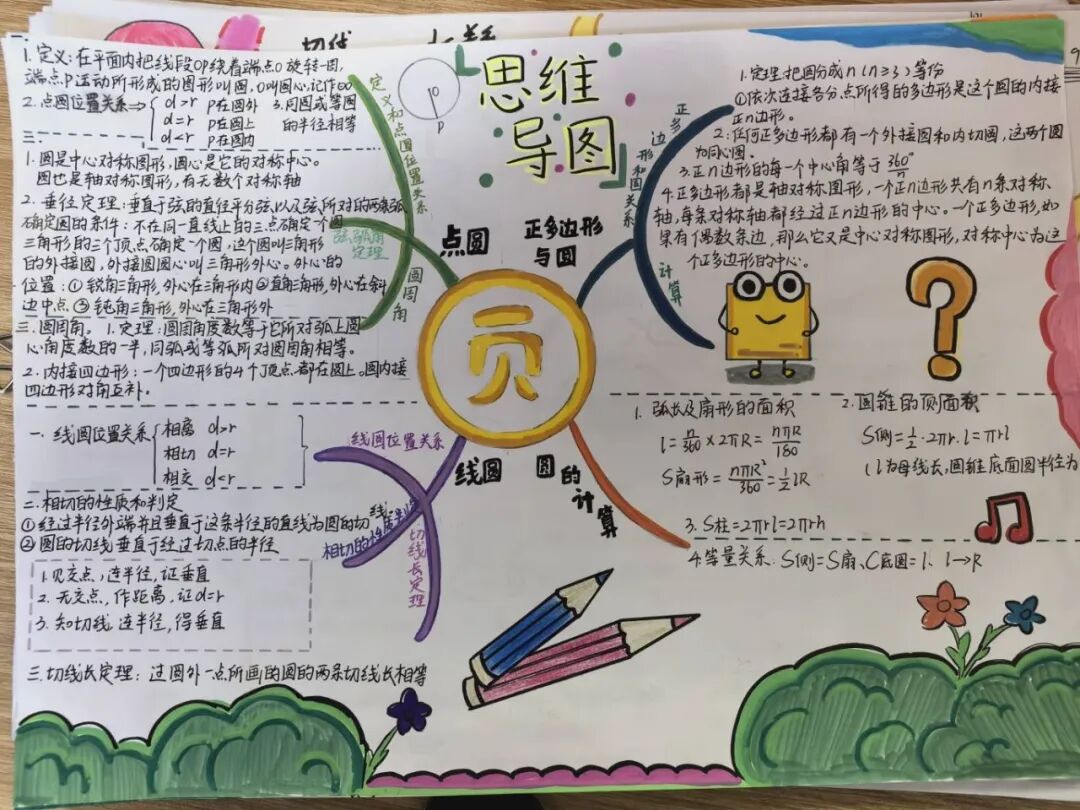 思维
导图
O
P
1.定义:在平面内把线段OP绕着端点O旋转一周,
端点P运动所形成的图形叫圆,O叫圆心,记作⊙O
2.点圆位置关系⇒
d>r P在圆外
d=r P在圆上
d<r P在圆内
3.同圆或等圆
的半径相等
二.
1.圆是中心对称图形,圆心是它的对称中心。
圆也是轴对称图形,有无数个对称轴
2.垂径定理:垂直于弦的直径平分弦以及弦所对的两条弧
确定圆的条件:不在同一直线上的三点确定一个圆
三角形的三个顶点确定一个圆,这个圆叫三角形
的外接圆,外接圆圆心叫三角形外心。外心的
位置:①锐角三角形,外心在三角形内②直角三角形,外心在斜
边中点③钝角三角形,外心在三角形外
三.圆周角。1.定理:圆周角度数等于它所对弧上圆
心角度数的一半,同弧或等弧所对圆周角相等。
2.内接四边形:一个四边形的4个顶点都在圆上。圆内接
四边形对角互补。
定义和点圆位置关系
弦弧角
定理
圆周角
点圆
正多边形
与圆
正多边形和圆关系
计算
1.定理:把圆分成n(n≥3)等份
①依次连接各分点所得的多边形是这个圆的内接
正n边形。
2:任何正多边形都有一个外接圆和内切圆,这两个圆
为同心圆。
3.正n边形的每一个中心角等于360°/n
4.正多边形都是轴对称图形,一个正n边形共有n条对称
轴,每条对称轴都经过正n边形的中心。一个正多边形,如
果有偶数条边,那么它又是中心对称图形,对称中心为这
个正多边形的中心。
页
线圆
圆的计算
一.线圆位置关系
相离 d>r
相切 d=r
相交 d<r
线圆位置关系
切线长定理
二.相切的性质和判定
①经过半径外端并且垂直于这条半径的直线为圆的切线.
②圆的切线垂直于经过切点的半径
1.见交点,连半径,证垂直
2.无交点,作距离,证d=r
3.知切线,连半径,得垂直
三.切线长定理:过圆外一点所画的圆的两条切线长相等
1.弧长及扇形的面积
l=n/360×2πR=nπR/180
S扇形=nπR²/360=1/2lR
2.圆锥的侧面积
S侧=1/2·2πr.l=πrl
(l为母线长,圆锥底面圆半径为
3.S柱=2πrl=2πrh
4.等量关系.S侧=S扇、C底圆=l、l→R